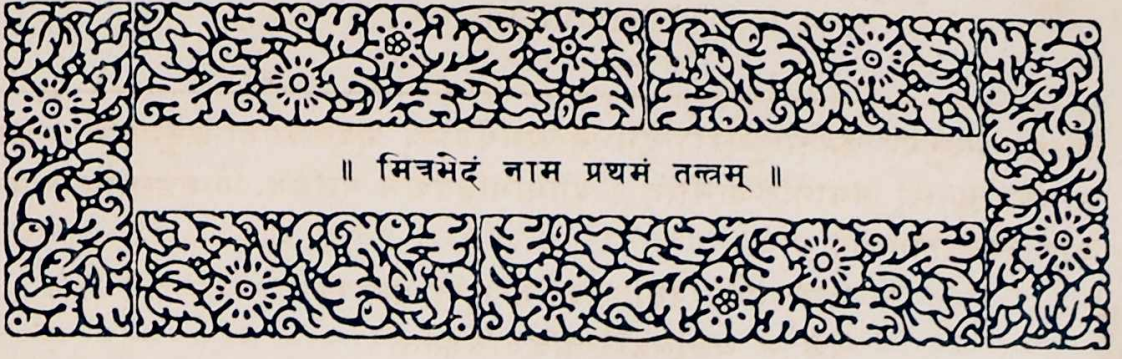 ॥ मित्रभेदं नाम प्रथमं तन्त्रम् ॥